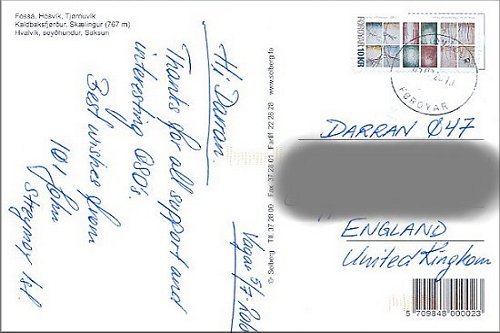 Fossá, Hósvík, Tjørnuvík
Kaldbaksfjørður, Skælingur (767 m)
Hvalvík, seyðhundur, Saksun
Hi Darran.
Thanks for all support and
interesting QSO's.
Best wishes from
161 John
Streymoy Isl.
Vagar 5/7-2010
© Solberg Tlf. 37 28 00 Fax 37 28 01 Fartlf. 22 28 28
www.solberg.fo
FØROYAR
FØROYAR
DARRAN Ø47
ENGLAND
United Kingkom
5 709848 000023